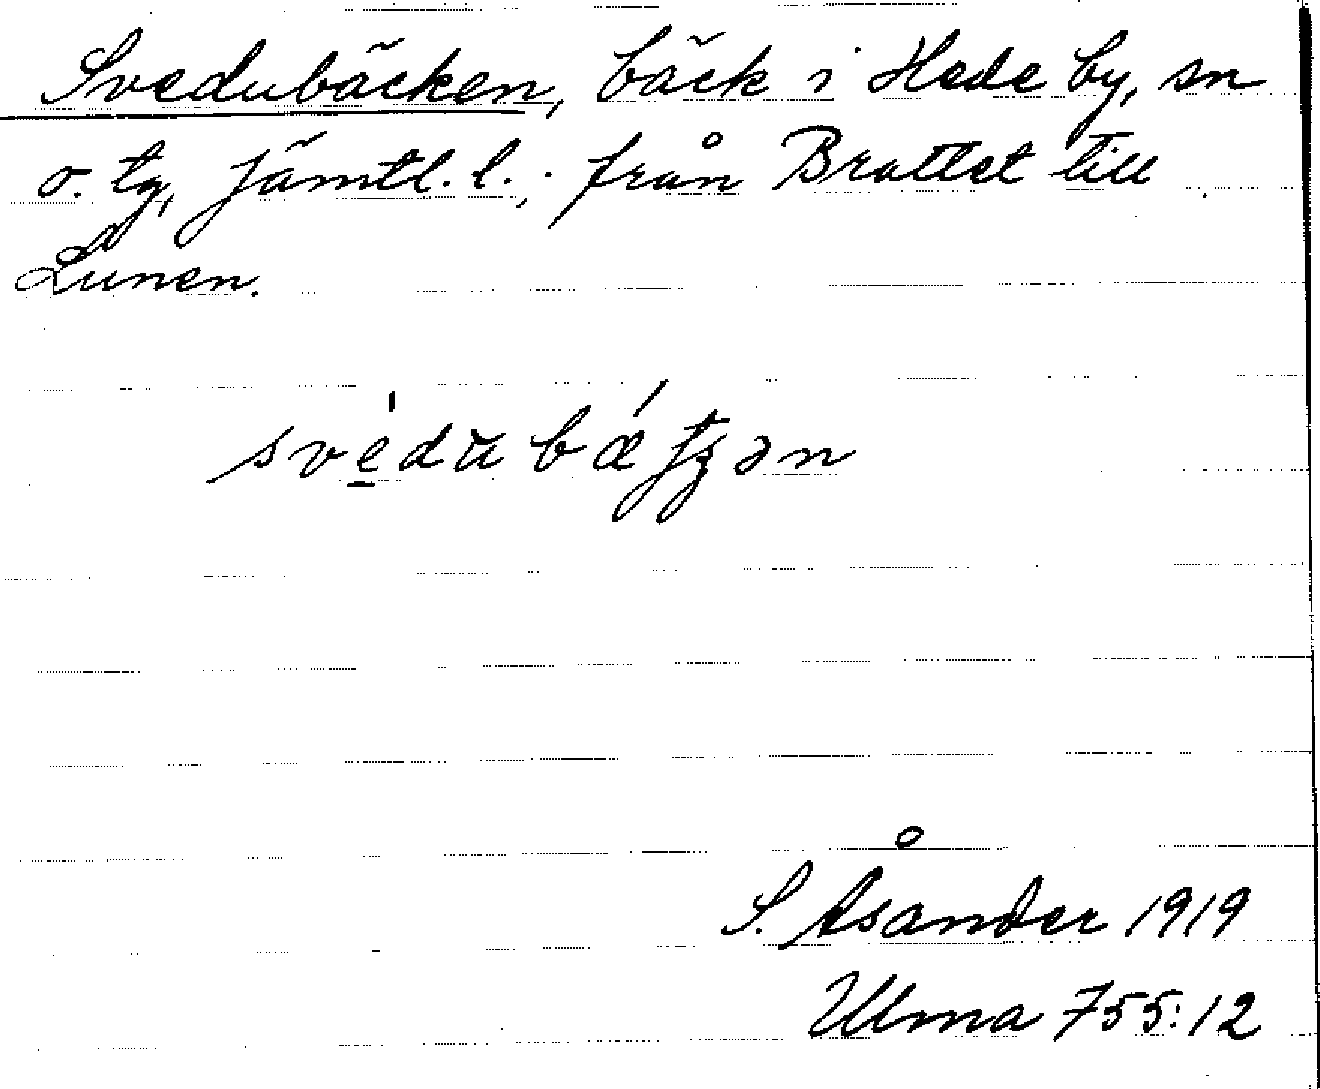 Svedubäcken, bäck i Hede by, sn
o. tg, Jämtl. l.; från Brattet till
Lunen.
S. Åsander 1919
Ulma 755:12